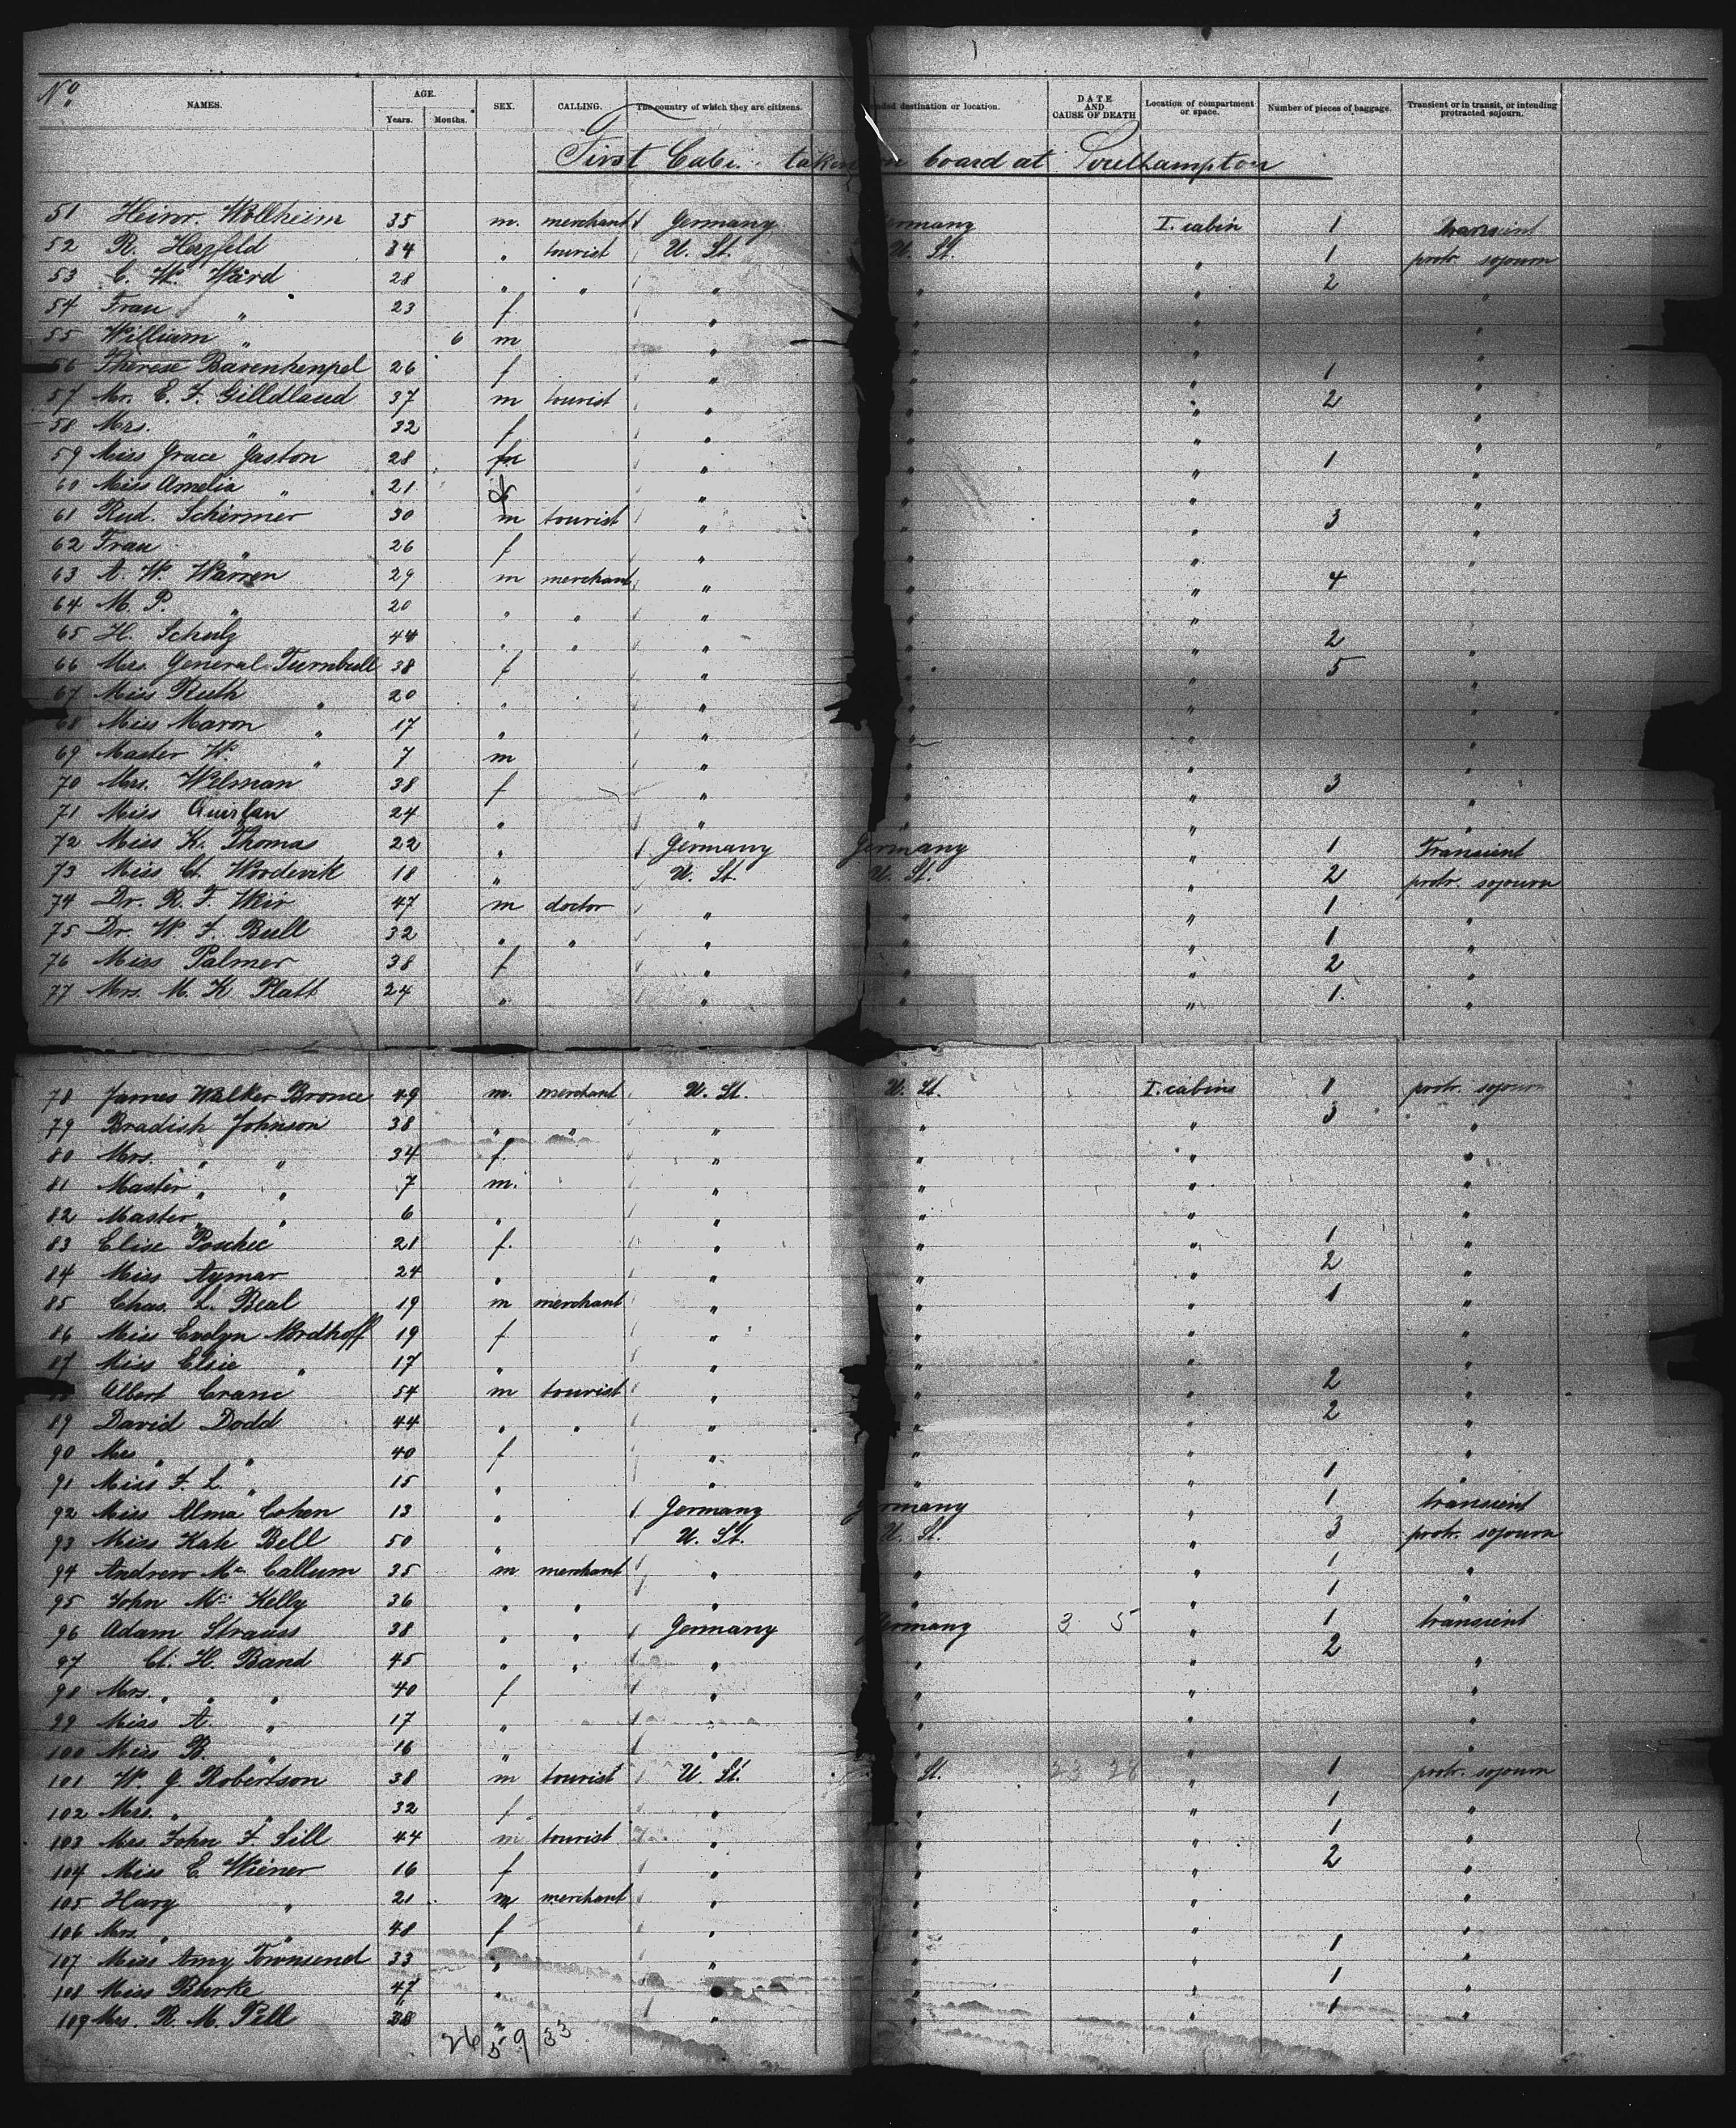 No.
NAMES. AGE. SEX. CALLING. The country of which they are citizens. ended destination or location. DATE AND CAUSE OF DEATH Location of compartment or space. Number of pieces of baggage. Transient or in transit, or intending protracted sojourn.
Years. Months.
First Cabi taken on board at Southampton
51 Heinr. Wollheim 35 m. merchant Germany ermany I. cabin 1 transient
52 R. Herzfeld 34 " tourist U. St. U. St. " 1 protr. sojourn
53 C. W. Ward 28 " " " " " 2 "
54 Frau " 23 f. " " " "
55 William " 6 m " " " "
56 Therese Bavenhenpel 26 f " " " 1 "
57 Mr. E. F. Gilldlaud 37 m tourist " " " 2 "
58 Mrs. " 32 f " " " "
59 Miss Grace Gaston 28 " " " 1 "
60 Miss Amelia " 21 f " " " "
61 Rud. Schirmer 30 m tourist " " " 3 "
62 Frau " 26 f " " " "
63 A. W. Warren 29 m merchant " " " 4 "
64 M. P. " 20 " " " " " "
65 H. Schulz 44 " " " " " 2 "
66 Mrs. General Turnbull 38 f " " " 5 "
67 Miss Ruth " 20 " " " " "
68 Miss Maron " 17 " " " " "
69 Master W. " 7 m " " " "
70 Mrs. Welman 38 f " " " 3 "
71 Miss 24 " " " " "
72 Miss K. Thomas 22 " Germany Germany " 1 Transient
73 Miss Ct. Wordevik 18 " U. St. U. St. " 2 protr. sojourn
74 Dr. R. F. Weir 47 m doctor " " " 1 "
75 Dr. W. F. Bull 32 " " " " " 1 "
76 Miss Palmer 38 f " " " 2 "
77 Mrs. M. K Platt 24 " " " " 1. "
78 James Walker Bronce 49 m. merchant U. St. U. St. I. cabins 1 protr. sojourn
79 Bradish Johnson 38 " " " " " 3 "
80 Mrs. " " 34 f. " " " "
81 Master " " 7 m. " " " "
82 Master " " 6 " " " " "
83 Elise Poschec 21 f. " " " 1 "
84 Miss Aymar 24 " " " " 2 "
85 Chas. L. Beal 19 m merchant " " " 1 "
86 Miss Evelyn Nordhoff 19 f " " " "
87 Miss Elsie " 17 " " " " "
Albert Crane 54 m tourist " " " 2 "
89 David Dodd 44 " " " " " 2 "
90 Mrs " " 40 f " " " "
91 Miss F. L. " 15 " " " " 1 "
92 Miss Alma Cohen 13 " Germany Germany " 1 transient
93 Miss Kate Bell 50 " U. St. U. St. " 3 protr. sojourn
94 Andrew Mc Callum 35 m merchant " " " 1 "
95 John Mc Kelly 36 " " " " " 1 "
96 Adam Strauss 38 " " Germany Germany 3 5 " 1 transient
97 Ct. H. Band 45 " " " " " 2 "
98 Mrs. " " " 40 f " " " "
99 Miss A. " 17 " " " " "
100 Miss B. " 16 " " " " "
101 W. G. Robertson 38 m tourist U. St. St. 23 28 " 1 protr. sojourn
102 Mrs. " " 32 f " " " 1 "
103 Mrs. John F. Sill 44 m tourist " " " 1 "
104 Miss E. Wiener 16 f " " " 2 "
105 Hary " 21 m merchant " " " "
106 Mrs. " " 48 f " " " "
107 Miss Amy Townsend 33 " " " " 1 "
108 Miss Burke 47 " " " " 1 "
109 Mrs. R. M. Pell 38 " " " " 1 "
26 59 33